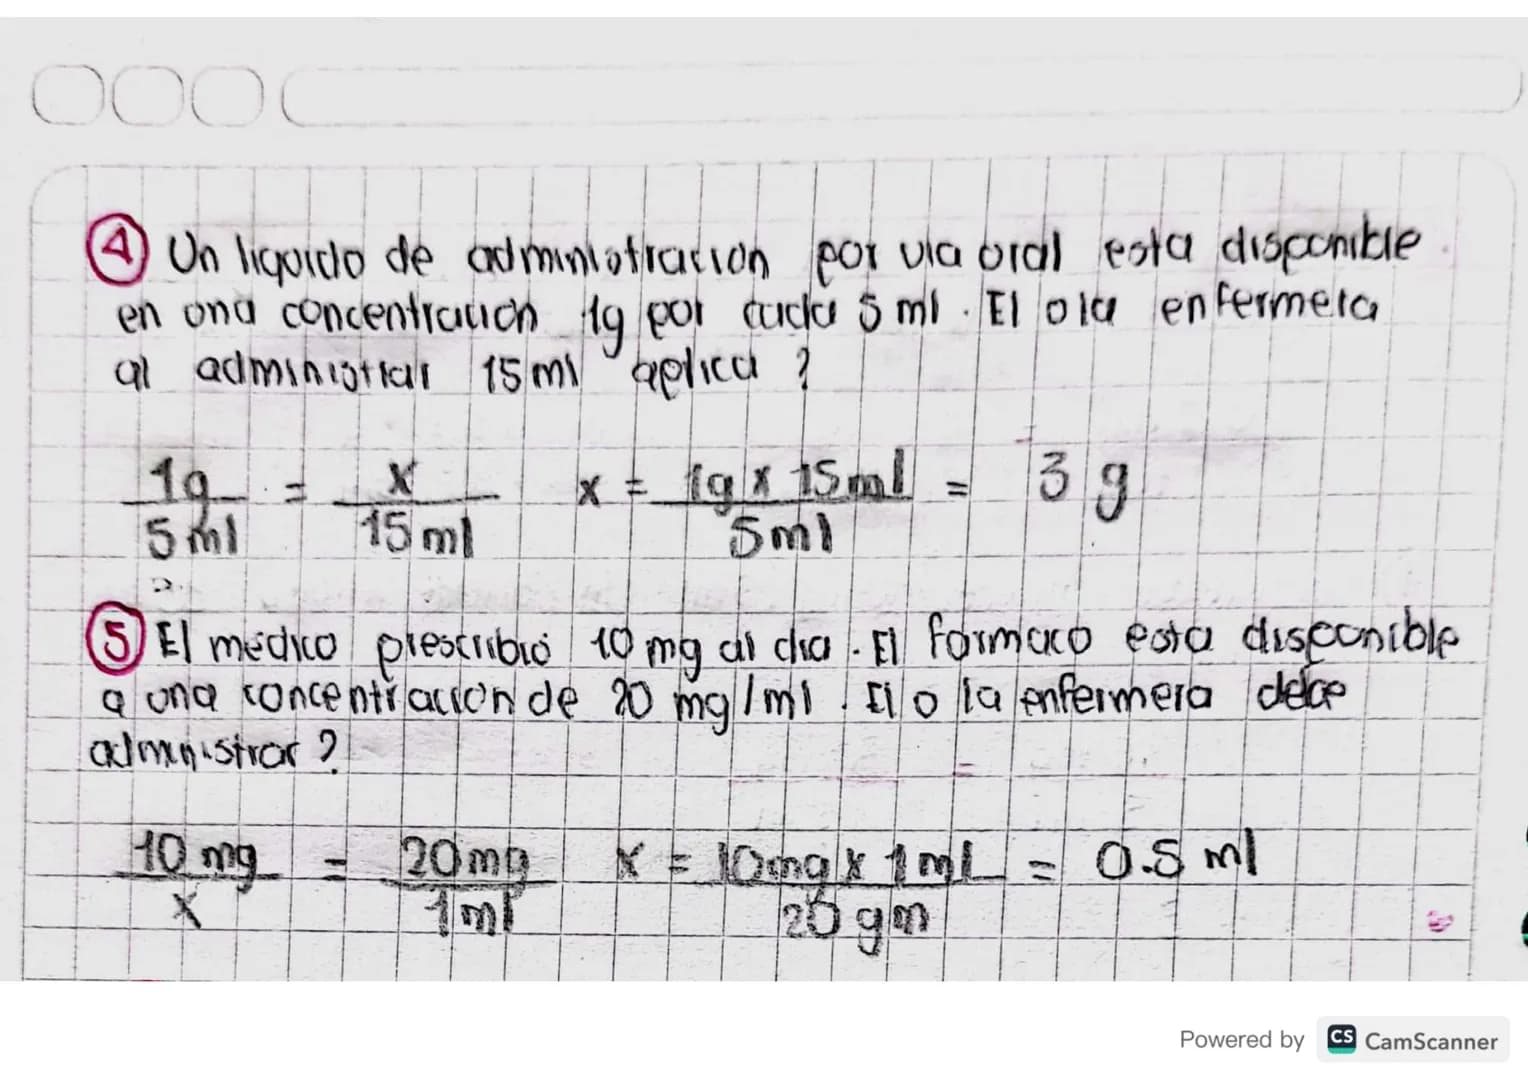 4 Un liquido de administracion por via oral esta disponible
en una concentracion 1g por cada 5 ml. El o la enfermera
al administrar 15 ml aplica ?
1g = x x = 1g x 15 ml = 3 g
5 ml 15 ml 5 ml
5 El médico prescribió 10 mg al dia. El farmaco esta disponible
a una concentracion de 20 mg/ml. El o la enfermera debe
administrar ?
10 mg = 20 mg x = 10mg x 1 mL = 0.5 ml
x 1 ml 20 gm
Powered by CS CamScanner